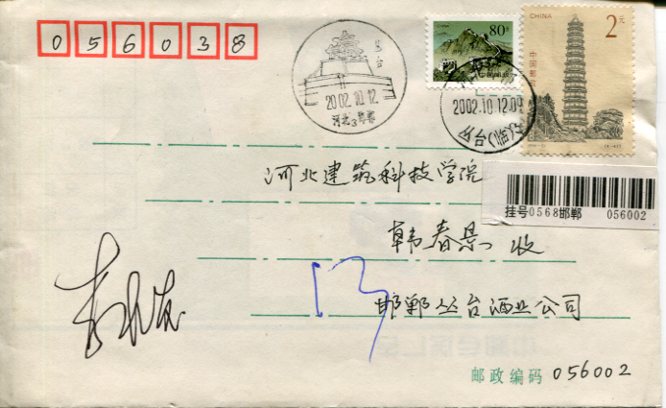 056038
80分
中国邮政
CHINA
2元
中国邮政
丛台
2002.10.12
河北 邯郸
2002.10.12.09
河北建筑科技学院
挂号0568邯郸 056002
韩春景 收
邯郸丛台酒业公司
邮政编码 056002